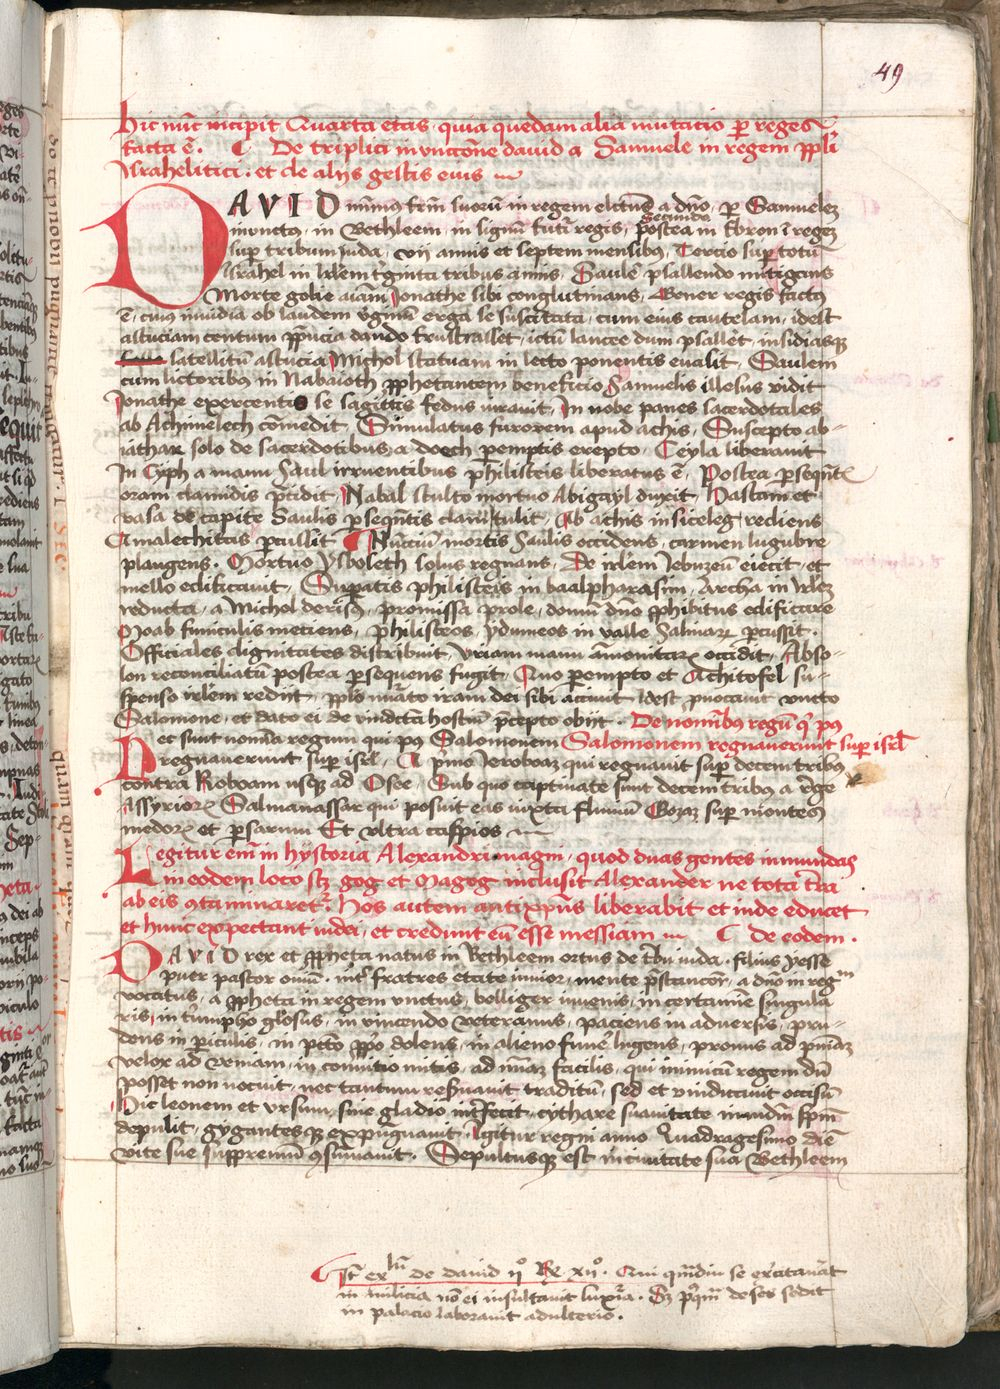 49
Hic nūc incipit Quarta etas, quia quedam alia mutacio ꝑ reges
facta ē. De triplici inunctione david a Samuele in regem ppli
Israhelitici. et de alijs gestis eius
DAVID minimus frm̄ suorū in regem elitus a dn̄o, ꝑ Samuelem
inunctus, in Bethleem, in signū futuri regis, secundo postea in Ebron ī regem
suꝑ tribum iuda, vii annis et septem mensibus, Tercio suꝑ totū
Israhel in Irlem triginta tribus annis, Saulē psallendo mitigans
Morte golie aīam Ionathe sibi conglutinans, Gener regis factus
ē, cuius invidia ob laudem virginum erga se suscitata, cum eius cautelam, idest
astuciam centum prepucia dando frustrasset, ictū lancee dum psallēt, insidiasque
satellitū astucia Michol statuam in lecto ponentis evasit, Saulem
cum lictoribus in Nabaioth prophetantem beneficio Samuelis illesus vidit
Ionathe exercentis se sagittis fedus iuravit, In nobe panes sacerdotales
ab Achimelech cōmedit, Simulatus furorem apud achis, Suscepto ab-
iathar solo de sacerdotibus a doech peremptis erepto, Ceyla liberavit
In Cyph a manu Saul irruentibus philisteis liberatus ē, Postea ꝑsequēt
oram clamidis p̄cidit, Nabal stulto mortuo Abigayl duxit, Hastam et
vasa de capite Saulis ꝑsequentis clam tulit, Ab achis in siceleg rediens
Amalechitas percussit. Nuncium mortis Saulis occidens, carmen lugubre
plangens, Mortuo Ysboleth solus regnans, De irlem Iebuzeū eiecit, et
mello edificavit, Superatis philisteis in baalpharasim, Archa in Irlem
reducta, a Michol derisus, promissa prole, domū dn̄o prohibitus edificare
Moab funiculis metiens, philisteos, ydumeos in valle Salinarum percussit.
Officiales dignitates distribuit, Vriam manu āmonitarum occidit, Abso-
lon reconciliatū postea ꝑsequens fugit, Quo perempto et Achitofel su-
spenso irlem rediit, pplo nūato iram dei sibi acciuit, idest provocavit uncto
Salomone, et dato ei de vindicta hostiū precepto obiit. De nominibus regū qui post
Hec sunt nomina regum qui post Salomonem Salomonem regnaverunt super isrl
regnaverunt super isrl, A primo Ieroboam qui regnavit super decem tribus
contra Roboam usque ad Osee, Sub quo captivate sunt decem tribus a rege
Assyriorum Salmanassar qui posuit eas iuxta fluvium Gozam super montes
medorum et persarum Et ultra caspios
Legitur enim in hystoria Alexandri magni, quod duas gentes inmundas
in eodem loco scz gog et Magog inclusit Alexander ne tota terra
ab eis contaminaretur. Hos autem antixpus liberabit et inde educet
et hunc expectant iudei, et credunt eum esse messiam. De eodem.
DAVID rex et ppheta natus in Bethleem ortus de tribu iuda, filius yesse
puer pastor ovium. inter fratres etate iunior, mente prestancior, a dn̄o in regem
vocatus, a ppheta in regem unctus, belliger iuvenis, in certamine singula-
ris, in triumpho gloriosus, in vincendo veteranus, paciens in adversis, pru-
dens in periculis, in peccato proprio dolens, in alieno funere lugens, pronus ad pniam
velox ad veniam, in convitio mitis, ad miam facilis, qui inimicū regem dum
posset non nocuit, nec tantum reservavit traditū, sed et vindicavit occisū
Hic leonem et ursum, sine gladio interfecit, cythare suavitate mundū spm
depulit, gygantesque expugnavit, Igitur regni anno Quadragesimo diē
vite sue suppremum consumavit. Sepultusque est in civitate sua Bethleem
It ex lū de david iiº Re xiiº. Qui quamdiu se exercitavit
in milicia non ei insultavit luxuria. Sz postquam deses sedit
in palacio laboravit adulterio.